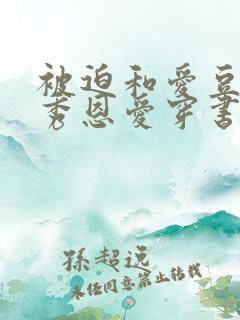 被迫和愛豆
秀恩愛穿書
孫超远
未任同意禁止转载